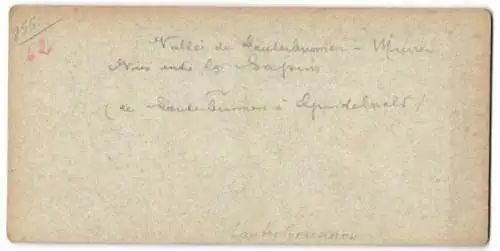 855.
62
Vallée de Lauterbrunnen - Murren
Vue entre les Sapins
(de Lauterbrunnen à Grindelwald)
Lauterbrunnen